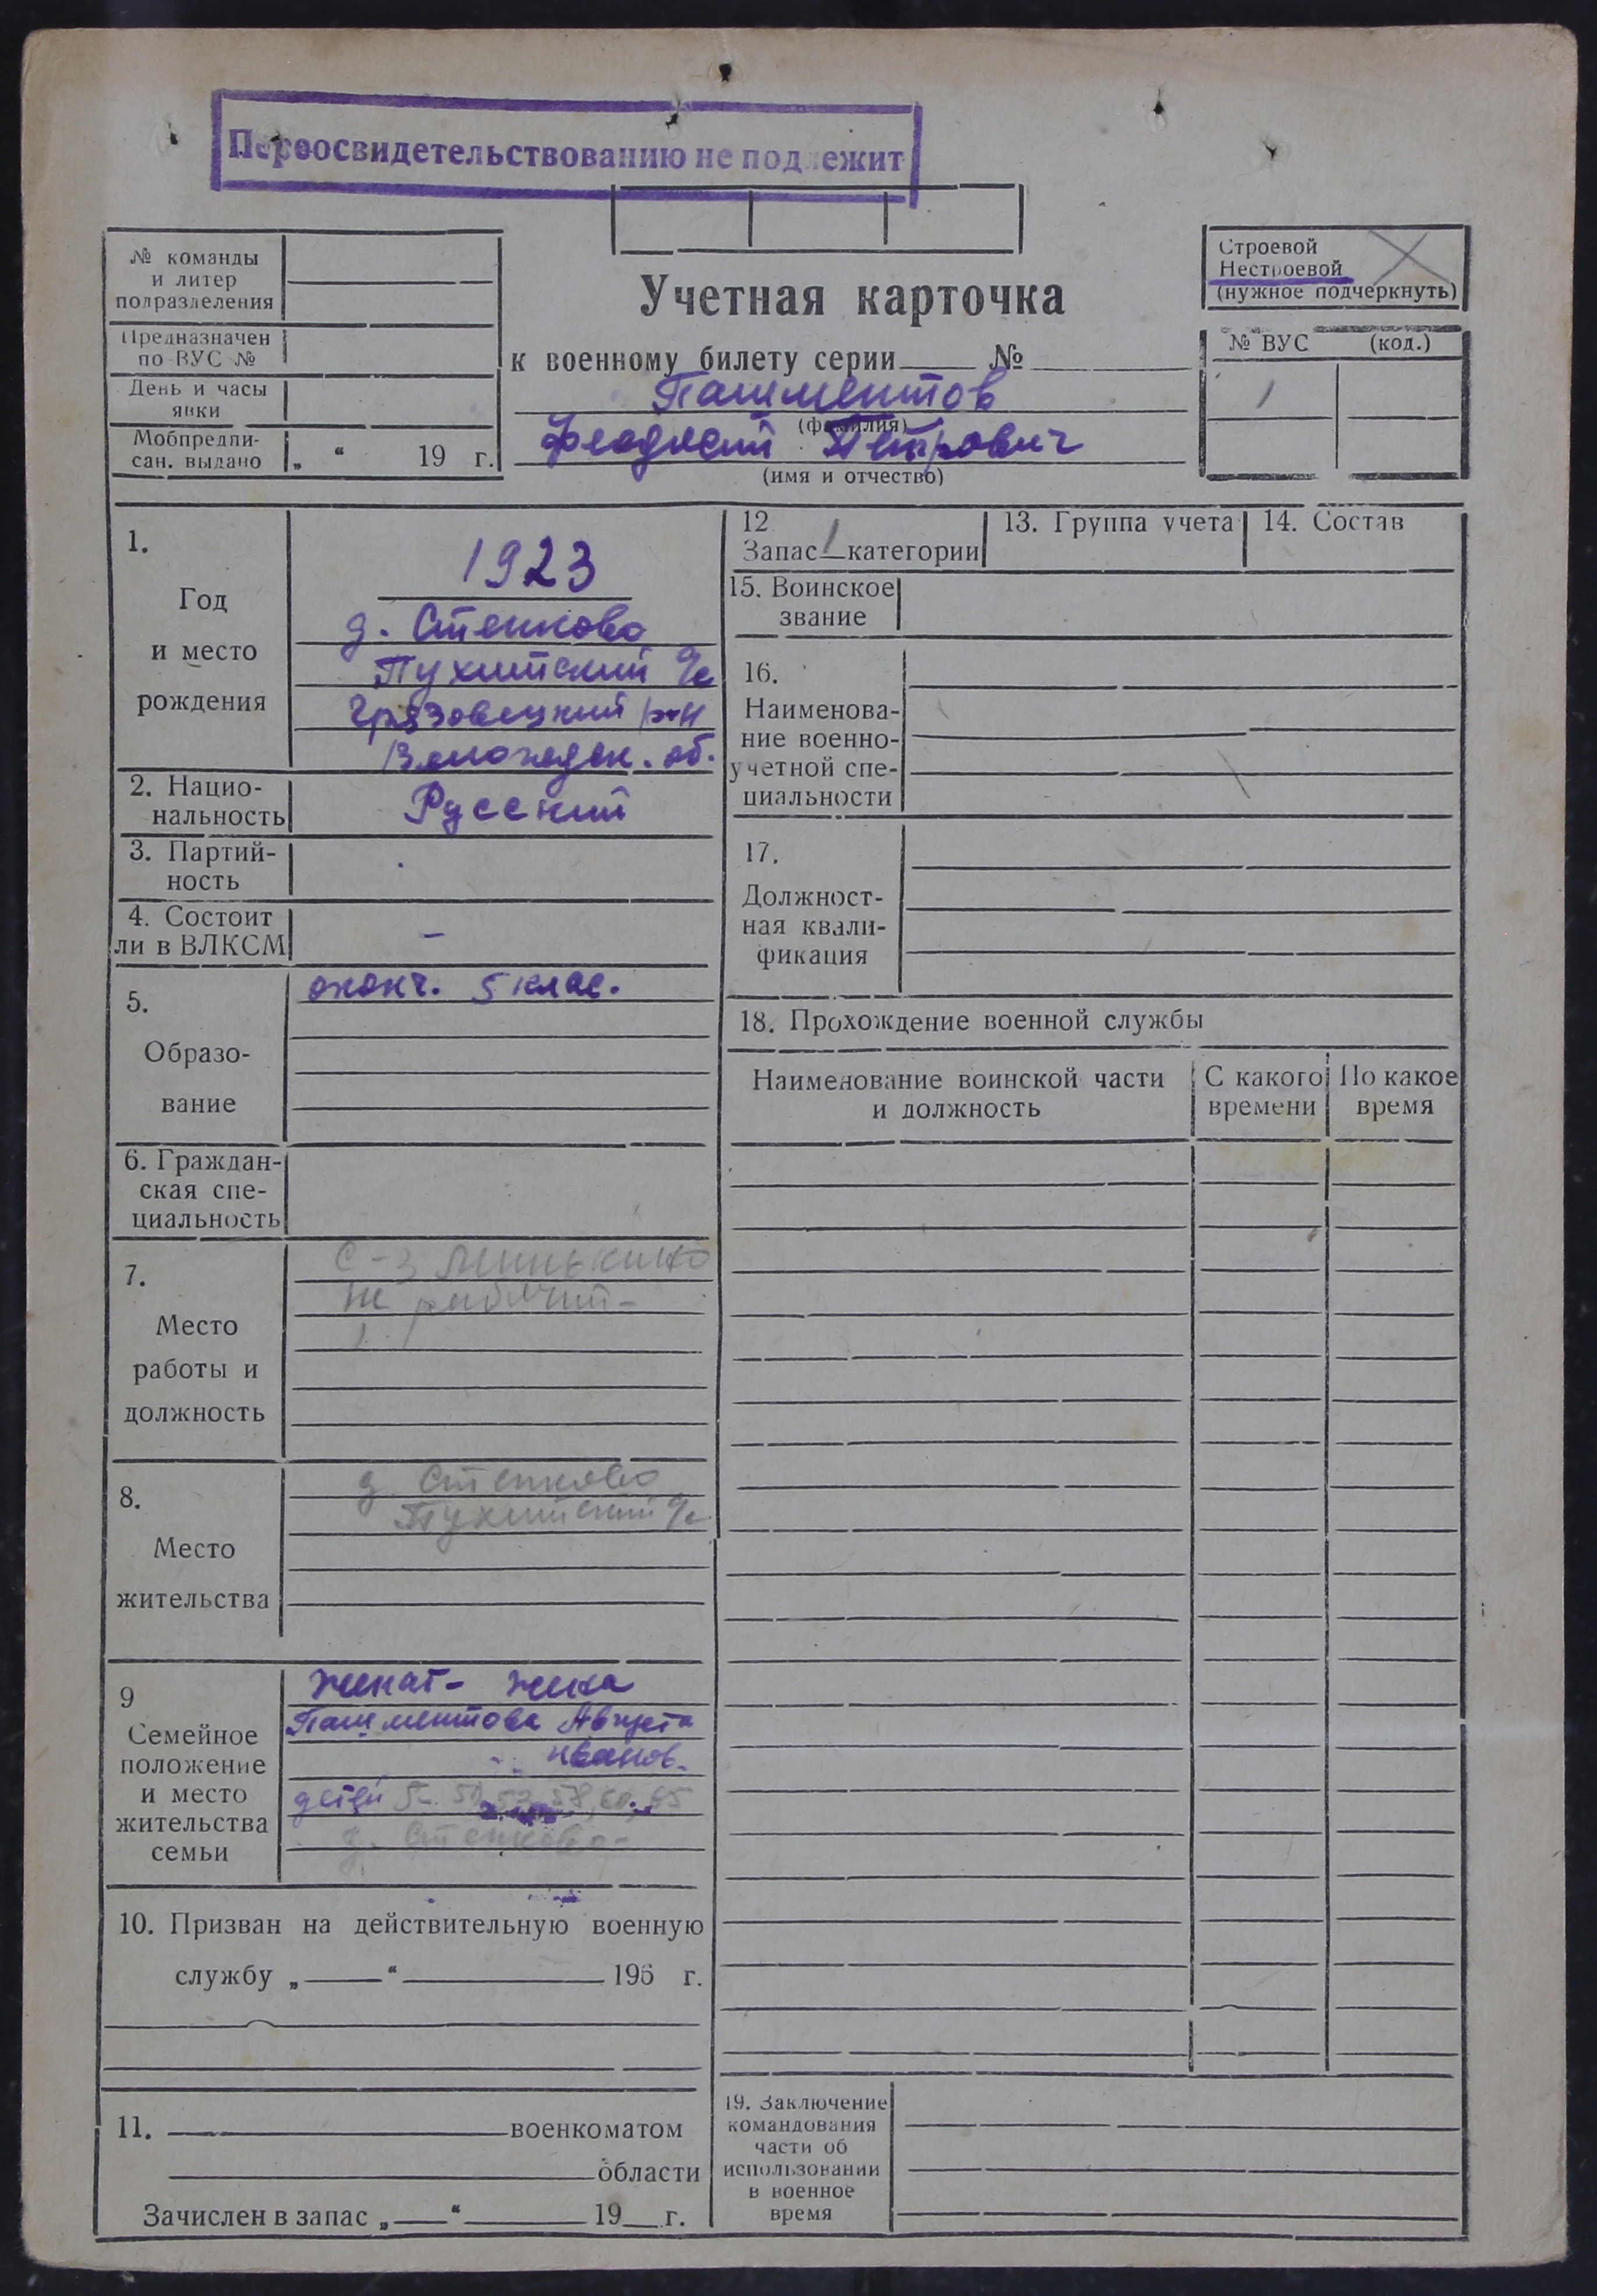 Переосвидетельствованию не подлежит
№ команды
и литер
подразделения
Предназначен
по ВУС №
День и часы
явки
Мобпредпи-
сан. выдано „ “ 19 г.
Учетная карточка
к военному билету серии № 
Пашментов
(фамилия)
Феодосий Петрович
(имя и отчество)
Строевой
Нестроевой
(нужное подчеркнуть)
№ ВУС (код.)
1
1.
Год
и место
рождения
1923
д. Стенково
Пухитский с/с
Грязовецкий р-н
Вологодск. об.
2. Нацио-
нальность
Русский
3. Партий-
ность
4. Состоит
ли в ВЛКСМ
–
5.
Образо-
вание
оконч. 5 клас.
6. Граждан-
ская спе-
циальность
7.
Место
работы и
должность
с-з Минькино
не работает
8.
Место
жительства
д. Стенково
Пухитский с/с
9
Семейное
положение
и место
жительства
семьи
женат - жена
Пашментова Августа
Иванов.
дети 58, 60, 65
д. Стенково
10. Призван на действительную военную
службу „ “ 195 г.
11. военкоматом
области
Зачислен в запас „ “ 19 г.
12
Запас 1 категории
13. Группа учета
14. Состав
15. Воинское
звание
16.
Наименова-
ние военно-
учетной спе-
циальности
17.
Должност-
ная квали-
фикация
18. Прохождение военной службы
Наименование воинской части
и должность
С какого
времени
По какое
время
19. Заключение
командования
части об
использовании
в военное
время